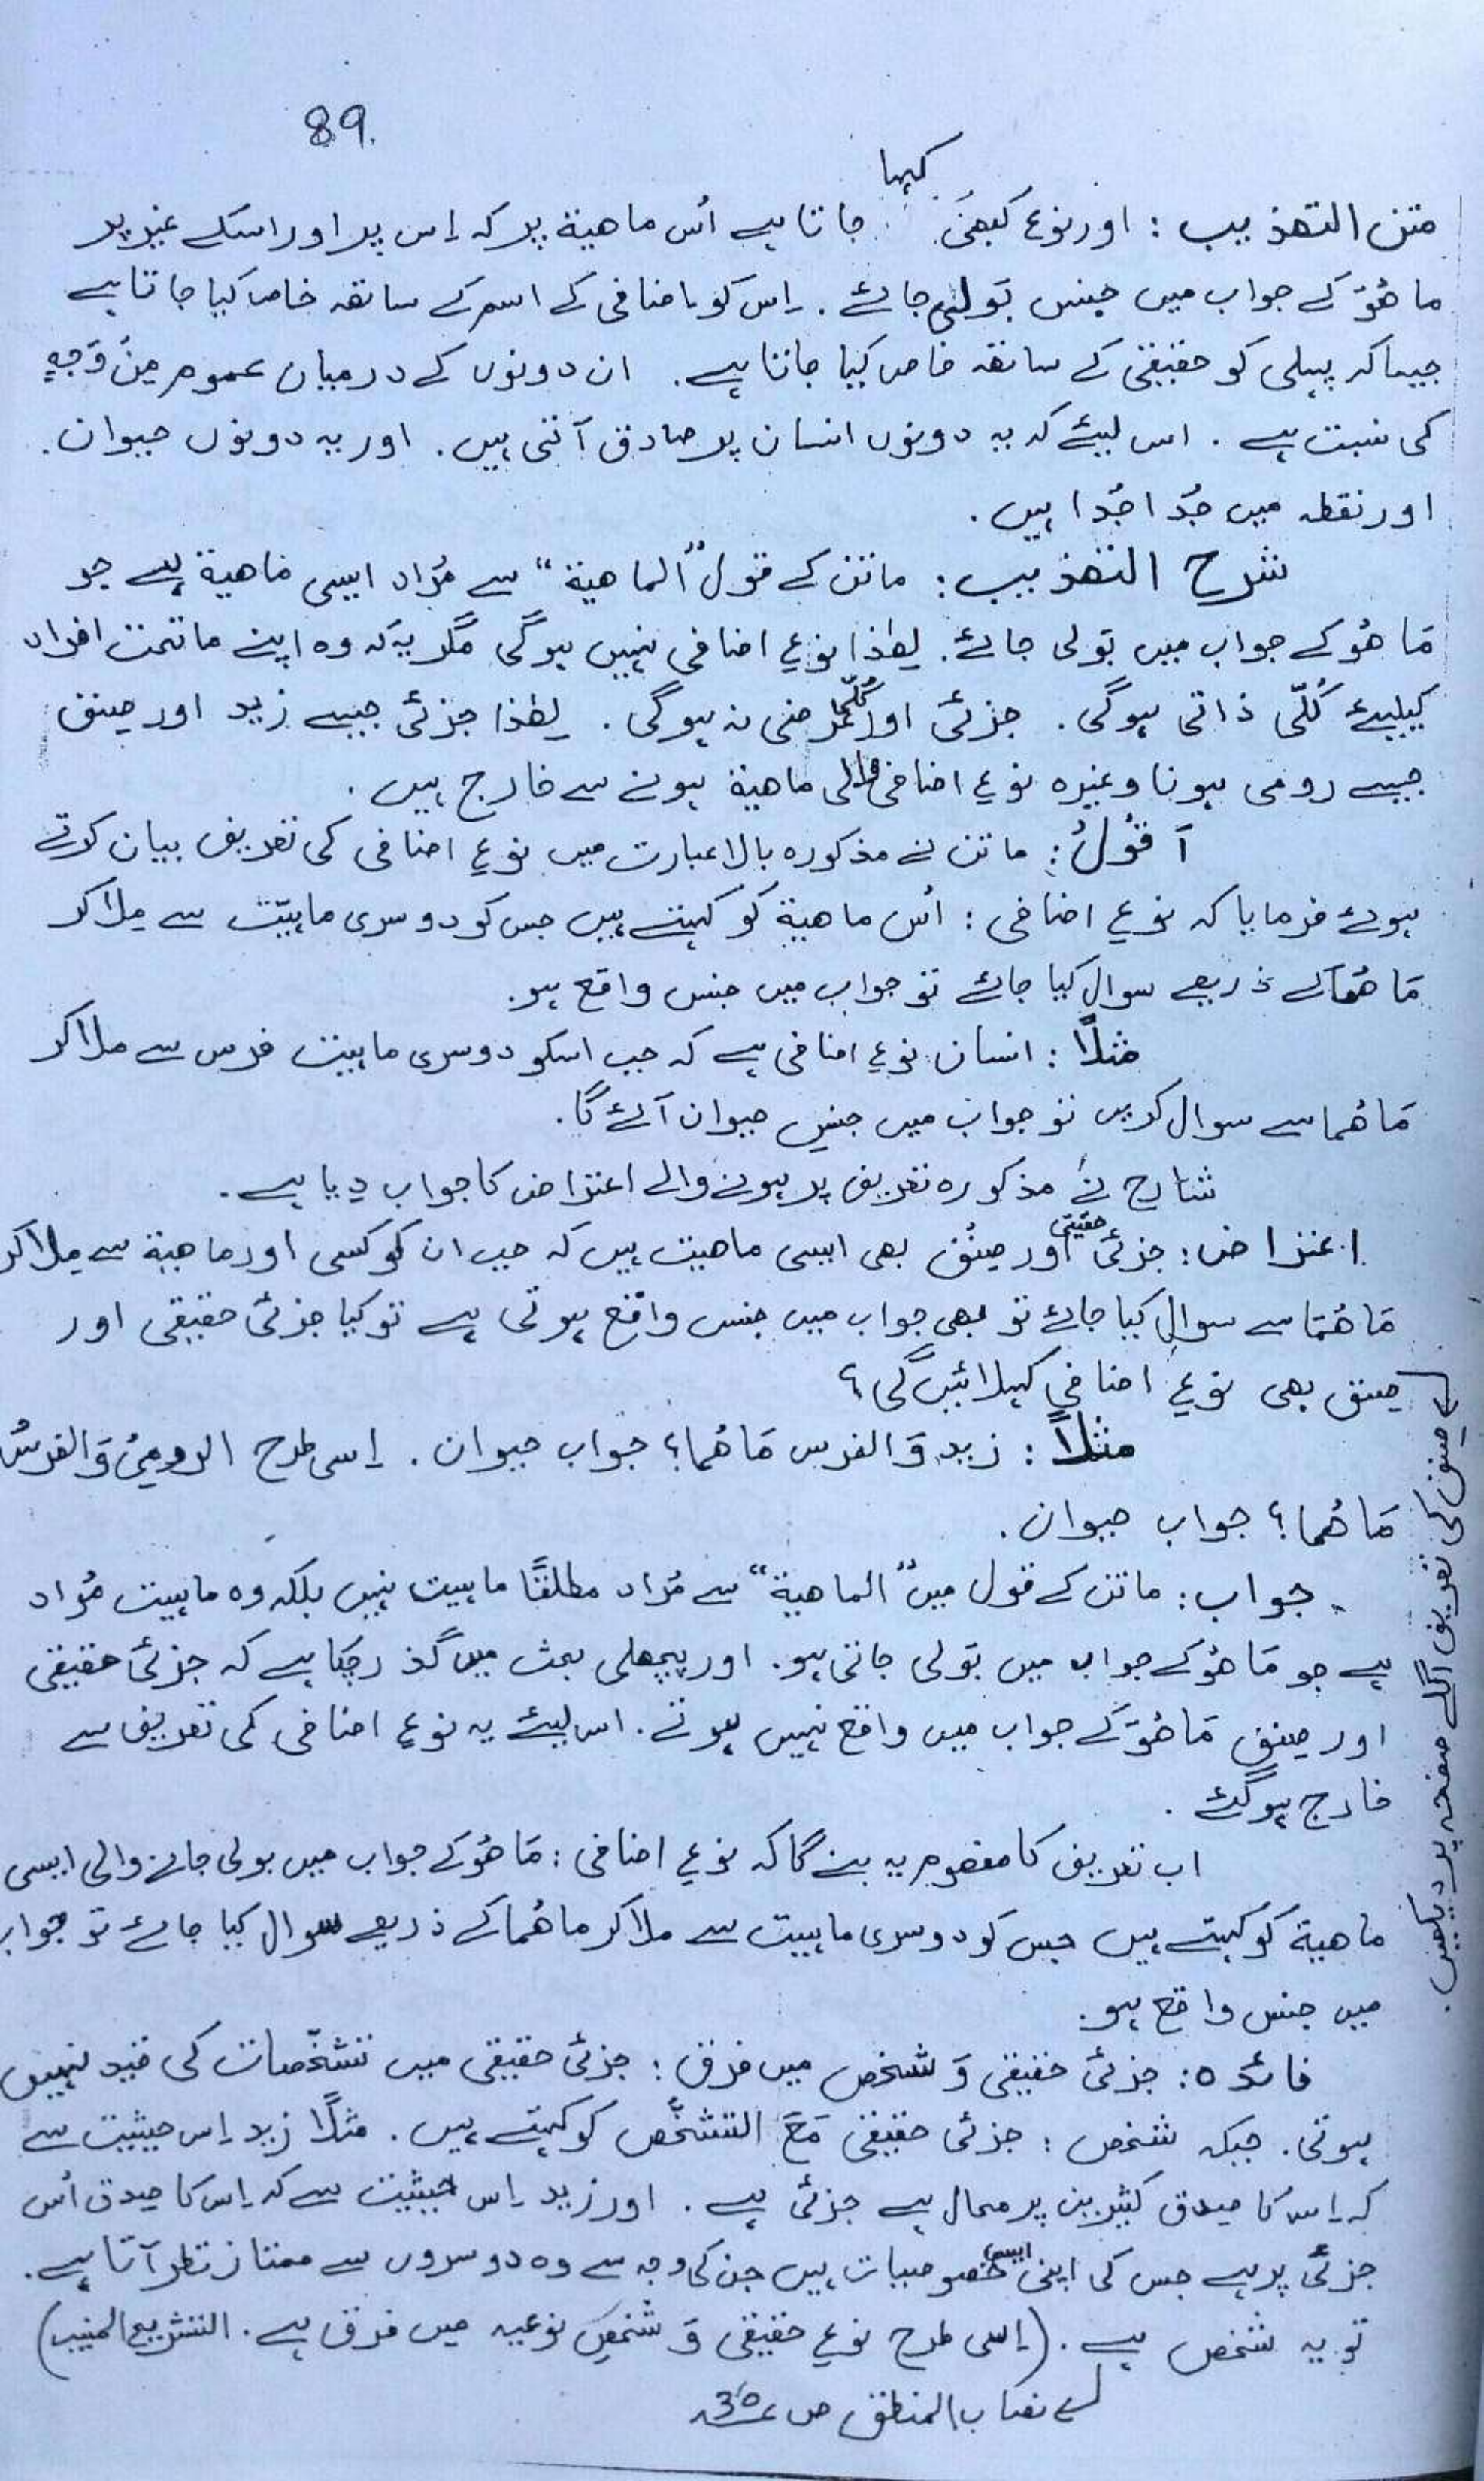 89.
کہا
متن التھذیب : اور نوع کبھی جاتا ہے اُس ماھیۃ پر کہ اِس پر اور اسکے غیر پر
ما ھُوَ کے جواب میں جنس بولی جائے . اِس کو اضافی کے اسم کے ساتھ خاص کیا جاتا ہے
جیسا کہ پہلی کو حقیقی کے ساتھ خاص کیا جاتا ہے . ان دونوں کے درمیان عموم مِنْ وَجہٍ
کی نسبت ہے . اس لیئے کہ یہ دونوں انسان پر صادق آتی ہیں . اور یہ دونوں حیوان .
اور نقطہ میں جُدا جُدا ہیں .
شرح التھذیب : ماتن کے قول "الماھیۃ" سے مُراد ایسی ماھیۃ ہے جو
مَا ھُوَ کے جواب میں بَولی جائے . لھٰذا نوعِ اضافی نہیں ہوگی مگر یہ کہ وہ اپنے ماتحت افراد
کیلیئے کُلّی ذاتی ہوگی . جزئی اور کُلّی عرضی نہ ہوگی . لھٰذا جزئی جیسے زید اور صِنف
جیسے رومی ہونا وغیرہ نوعِ اضافی والی ماھیۃ ہونے سے خارج ہیں .
آقُولُ : ماتن نے مذکورہ بالا عبارت میں نوعِ اضافی کی تعریف بیان کرتے
ہوئے فرمایا کہ نوعِ اضافی : اُس ماھیۃ کو کہتے ہیں جس کو دوسری ماہیّت سے مِلا کر
مَا ھُمَا کے ذریعے سوال کیا جائے تو جواب میں جنس واقع ہو .
مثلًا : انسان نوعِ اضافی ہے کہ جب اسکو دوسری ماہیت فرس سے ملا کر
مَا ھُما سے سوال کریں تو جواب میں جنس حیوان آئے گا .
شارح نے مذکورہ تعریف پر ہونے والے اعتراض کا جواب دیا ہے .
اعتراض : جزئی حقیقی اور صِنْف بھی ایسی ماھیت ہیں کہ جب ان کو کسی اور ماھیۃ سے مِلا کر
مَا ھُمَا سے سوال کیا جائے تو بھی جواب میں جنس واقع ہوتی ہے تو کیا جزئی حقیقی اور
صِنف بھی نوعِ اضافی کہلائیں گی ؟
مثلًا : زید وَ الفرس مَا ھُما ؟ جواب حیوان . اِسی طرح الرومیُ وَ الفرسُ
مَا ھُما ؟ جواب حیوان .
جواب : ماتن کے قول میں "الماھیۃ" سے مُراد مطلقًا ماہیت نہیں بلکہ وہ ماہیت مُراد
ہے جو مَا ھُوَ کے جواب میں بَولی جاتی ہو . اور پچھلی بحث میں گذر چکا ہے کہ جزئی حقیقی
اور صِنف مَا ھُوَ کے جواب میں واقع نہیں ہوتے . اس لیئے یہ نوعِ اضافی کی تعریف سے
خارج ہوگئے .
اب تعریف کا مفھوم یہ بنے گا کہ نوعِ اضافی : مَا ھُوَ کے جواب میں بولی جانے والی ایسی
ماھیۃ کو کہتے ہیں جس کو دوسری ماہیت سے ملا کر ما ھُما کے ذریعے سوال کیا جائے تو جواب
میں جنس واقع ہو .
فائدہ : جزئی حقیقی وَ شخص میں فرق : جزئی حقیقی میں تشخّصات کی قید نہیں
ہوتی . جبکہ شخص : جزئی حقیقی مَعَ التشخُّص کو کہتے ہیں . مثلًا زید اِس حیثیت سے
کہ اِس کا صِدق کثیرین پر محال ہے جزئی ہے . اور زید اِس حیثیت سے کہ اِس کا صِدق اُس
جزئی پر ہے جس کی اپنی ایسی خصوصیات ہیں جن کی وجہ سے وہ دوسروں سے ممتاز نظر آتا ہے .
تو یہ شخص ہے . (اِسی طرح نوعِ حقیقی وَ شخصِ نوعیہ میں فرق ہے . التشریع المنیب)
لے نصاب المنطق ص
لے صِنف کی تعریف اگلے صفحہ پر دیکھیں .